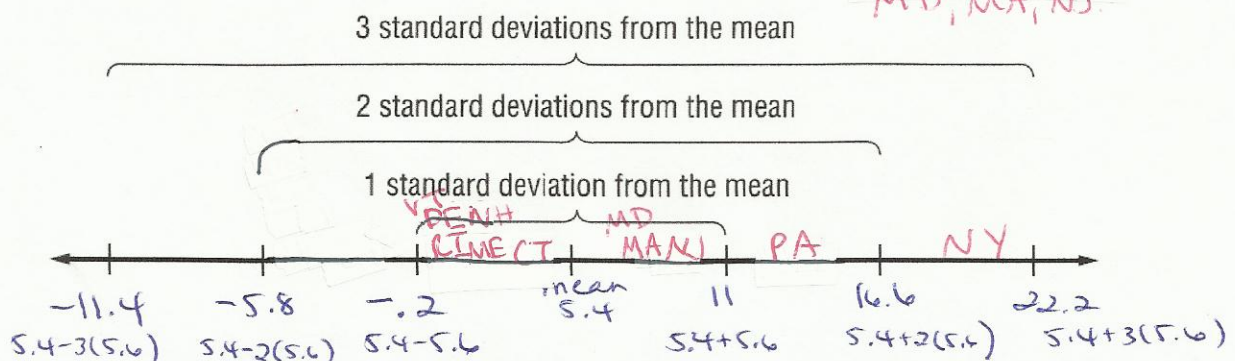 MD, MA, NJ
3 standard deviations from the mean
2 standard deviations from the mean
1 standard deviation from the mean
VT
DE NH MD
RI ME CT MA NJ PA NY
-11.4 -5.8 -.2 mean 5.4 11 16.6 22.2
5.4-3(5.6) 5.4-2(5.6) 5.4-5.6 5.4+5.6 5.4+2(5.6) 5.4+3(5.6)